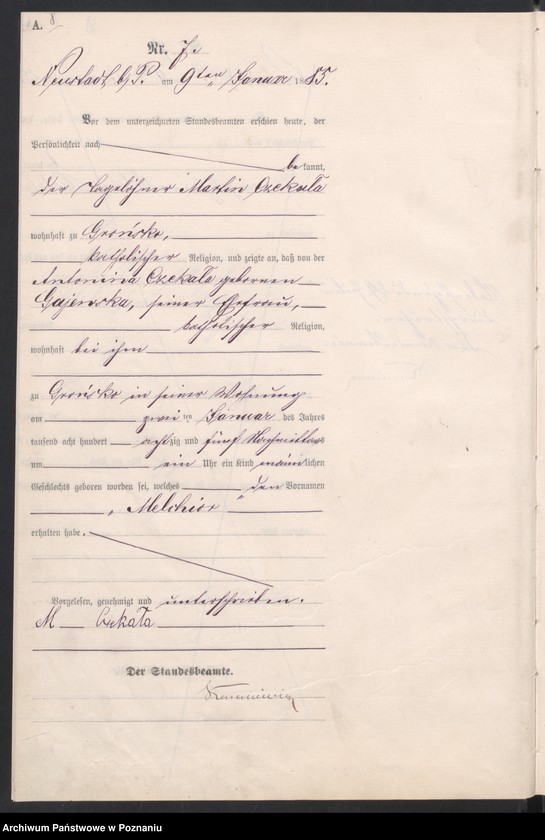 A. 8
Nr. 7.
Neustadt b/P. am 9ten Januar 1885.
Vor dem unterzeichneten Standesbeamten erschien heute, der
Persönlichkeit nach
bekannt,
der Tagelöhner Martin Czekała
wohnhaft zu Grońsko,
katholischer Religion, und zeigte an, daß von der
Antonina Czekała geborenen
Gajewska, seiner Ehefrau,
katholischer Religion,
wohnhaft bei ihm
zu Grońsko in seiner Wohnung
am zweiten Januar des Jahres
tausend acht hundert achtzig und fünf Nachmittags
um ein Uhr ein Kind männlichen
Geschlechts geboren worden sei, welches den Vornamen
„Melchior“
erhalten habe.
Vorgelesen, genehmigt und unterschrieben.
M Czekała
Der Standesbeamte.
Archiwum Państwowe w Poznaniu